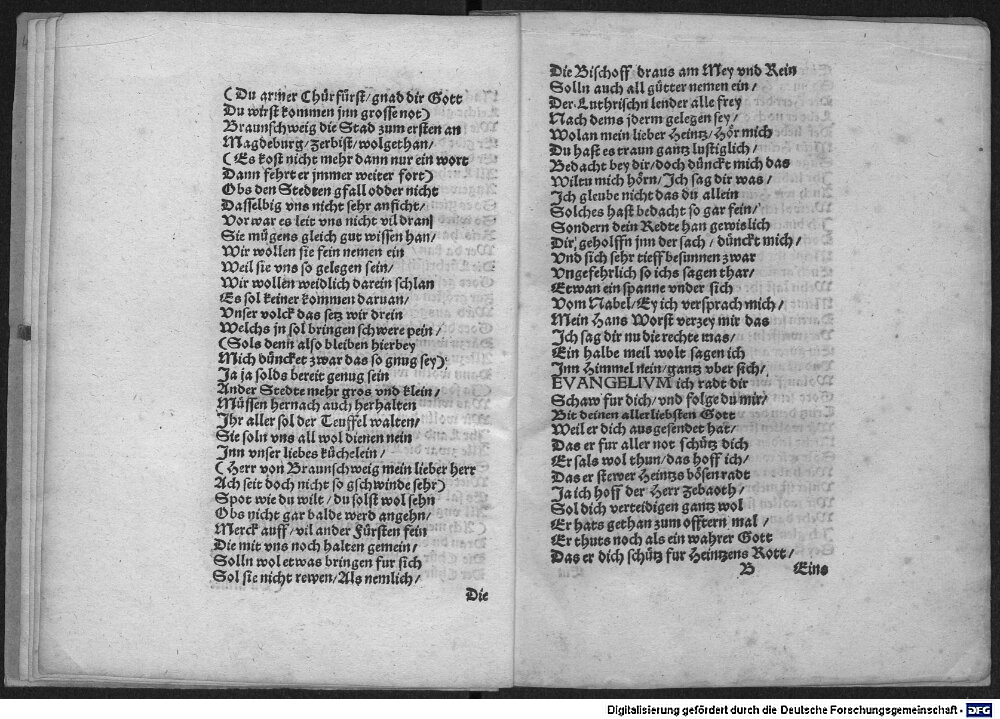 (Du armer Chürfürst/gnad dir Gott
Du wirst kommen jnn grosse not)
Braunschweig die Stad zum ersten an
Magdeburg/Zerbist/wolgethan/
(Es kost nicht mehr dann nur ein wort
Dann fehrt er jmmer weiter fort)
Obs den Stedten gfall odder nicht
Dasselbig vns nicht sehr anficht/
Vorwar es leit vns nicht vil dran/
Sie mügens gleich gut wissen han/
Wir wollen sie fein nemen ein
Weil sie vns so gelegen sein/
Wir wollen weidlich darein schlan
Es sol keiner kommen daruan/
Vnser volck das setz wir drein
Welchs jn sol bringen schwere pein/
(Sols denn also bleiben hierbey
Mich düncket zwar das so gnug sey)
Ja ja solds bereit genug sein
Ander Stedte mehr gros vnd klein/
Müssen hernach auch herhalten
Ihr aller sol der Teuffel walten/
Sie soln vns all wol dienen nein
Inn vnser liebes küchelein/
(Herr von Braunschweig mein lieber herr
Ach seit doch nicht so gschwinde sehr)
Spot wie du wilt/du solst wol sehn
Obs nicht gar balde werd angehn/
Merck auff/vil ander Fürsten fein
Die mit vns noch halten gemein/
Solln wol etwas bringen fur sich
Sol sie nicht rewen/Als nemlich/
Die
Die Bischoff draus am Mey vnd Rein
Solln auch all gütter nemen ein/
Der Luthrischn lender alle frey
Nach dems jderm gelegen sey/
Wolan mein lieber Heintz/Hör mich
Du hast es traun gantz lustiglich/
Bedacht bey dir/doch dünckt mich das
Wiltu mich hörn/Ich sag dir was/
Ich gleube nicht das du allein
Solches hast bedacht so gar fein/
Sondern dein Redte han gewislich
Dir geholffn jnn der sach/dünckt mich/
Vnd sich sehr tieff besunnen zwar
Vngefehrlich so ichs sagen thar/
Etwan ein spanne vnder sich
Vom Nabel/Ey ich versprach mich/
Mein Hans Worst verzey mir das
Ich sag dir nu die rechte mas/
Ein halbe meil wolt sagen ich
Inn Himmel nein/gantz vber sich/
EVANGELIVM ich radt dir
Schaw fur dich/vnd folge du mir/
Bit deinen allerliebsten Gott
Weil er dich ausgesendet hat/
Das er fur aller not schütz dich
Er sals wol thun/das hoff ich/
Das er stewer Heintzs bösen radt
Ja ich hoff der Herr Zebaoth/
Sol dich verteidigen gantz wol
Er hats gethan zum offtern mal/
Er thuts noch als ein wahrer Gott
Das er dich schütz fur Heintzens Rott/
B Eins
Digitalisierung gefördert durch die Deutsche Forschungsgemeinschaft - DFG